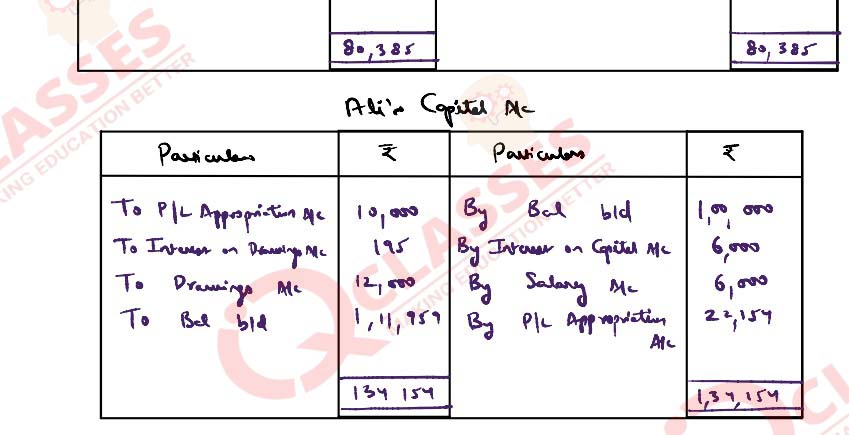 80,385 80,385
Ali's Capital A/c
Particulars ₹ Particulars ₹
To P/L Appropriation A/c 10,000 By Bal b/d 1,00,000
To Interest on Drawings A/c 195 By Interest on Capital A/c 6,000
To Drawings A/c 12,000 By Salary A/c 6,000
To Bal b/d 1,11,959 By P/L Appropriation A/c 22,154
134 154 1,34,154
LASSES
KING EDUCATION BETTER
CLASSES
MAKING EDUCATION BETTER
CL